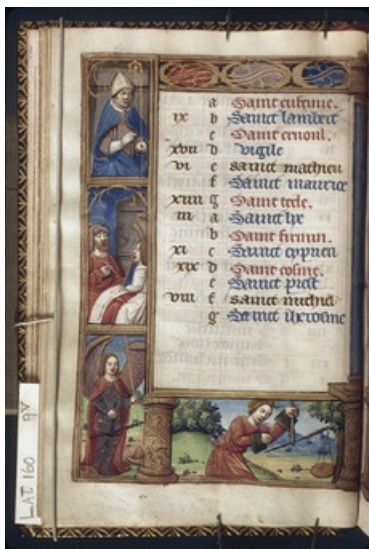 a Saint eufemie.
ix b Sainct lambert
c Saint
xvii d vigile
vi e sainct mathieu
f Sainct maurice
xiiii g Saint tecle.
iii a Sainct
b Saint firmin.
xi c Sainct cyprien
xix d Saint cosme.
e Sainct
viii f sainct michiel
g Sainct iherosme
LAT. 160 9V